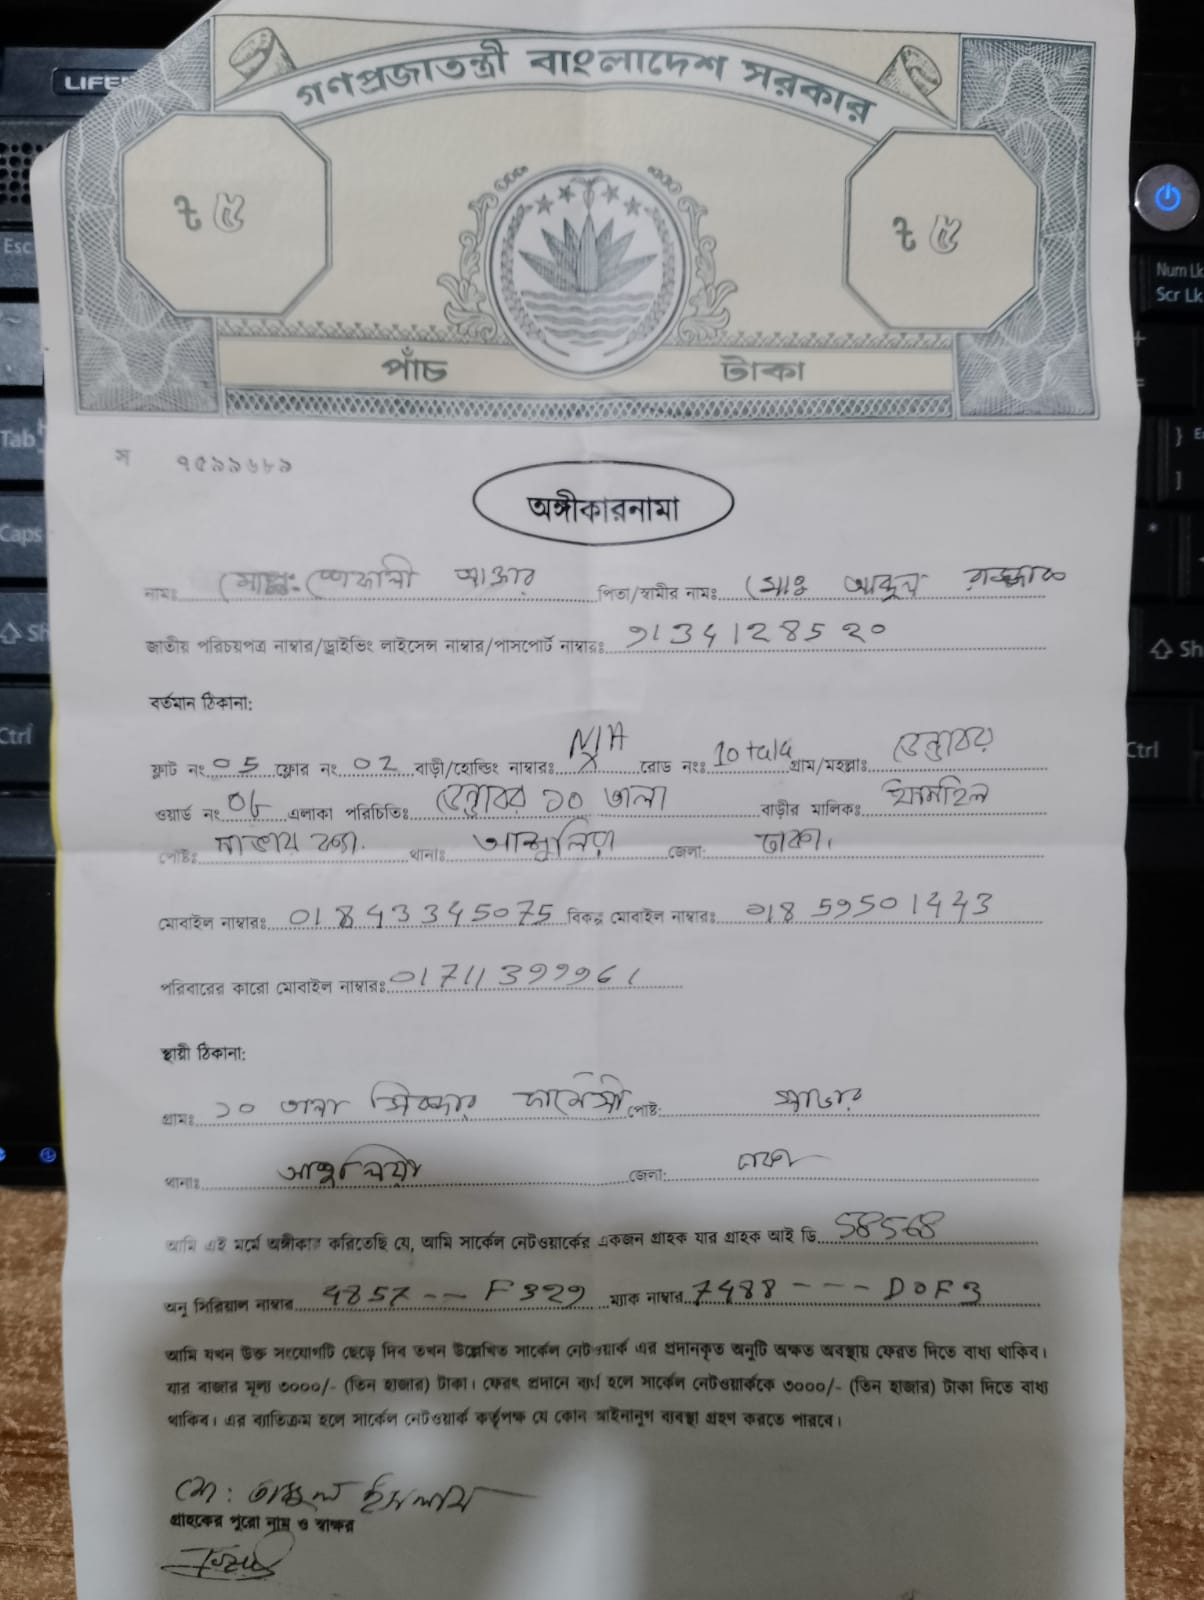 গণপ্রজাতন্ত্রী বাংলাদেশ সরকার
৳ ৫ ৳ ৫
পাঁচ টাকা
স ৭৫৯৯৬৮৯
অঙ্গীকারনামা
নামঃ শেফালী আক্তার পিতা/স্বামীর নামঃ মোঃ আব্দুল রাজ্জাক
জাতীয় পরিচয়পত্র নাম্বার/ড্রাইভিং লাইসেন্স নাম্বার/পাসপোর্ট নাম্বারঃ
বর্তমান ঠিকানা:
ফ্লাট নং ০5 ফ্লোর নং ০2 বাড়ী/হোল্ডিং নাম্বারঃ N/A রোড নংঃ 10 tala গ্রাম/মহল্লাঃ
ওয়ার্ড নং এলাকা পরিচিতিঃ ১০ তালা বাড়ীর মালিকঃ ইসমাইল
পোষ্টঃ থানাঃ আশুলিয়া জেলা: ঢাকা।
মোবাইল নাম্বারঃ 01843345075 বিকল্প মোবাইল নাম্বারঃ 01859501443
পরিবারের কারো মোবাইল নাম্বারঃ
স্থায়ী ঠিকানা:
গ্রামঃ ১০ তালা সিকদার ফার্মেসী পোষ্ট: সাভার
থানাঃ আশুলিয়া জেলা: ঢাকা
আমি এই মর্মে অঙ্গীকার করিতেছি যে, আমি সার্কেল নেটওয়ার্কের একজন গ্রাহক যার গ্রাহক আই ডি 58568
অনু সিরিয়াল নাম্বার 4857 -- F329 ম্যাক নাম্বার 7488 --- D0F3
আমি যখন উক্ত সংযোগটি ছেড়ে দিব তখন উল্লেখিত সার্কেল নেটওয়ার্ক এর প্রদানকৃত অনুটি অক্ষত অবস্থায় ফেরত দিতে বাধ্য থাকিব।
যার বাজার মূল্য ৩০০০/- (তিন হাজার) টাকা। ফেরৎ প্রদানে ব্যর্থ হলে সার্কেল নেটওয়ার্ককে ৩০০০/- (তিন হাজার) টাকা দিতে বাধ্য
থাকিব। এর ব্যতিক্রম হলে সার্কেল নেটওয়ার্ক কর্তৃপক্ষ যে কোন আইনানুগ ব্যবস্থা গ্রহণ করতে পারবে।
মো: ইসলাম
গ্রাহকের পুরো নাম ও স্বাক্ষর
Esc
Tab
Caps
Ctrl
Num Lk
Scr Lk
Ctrl